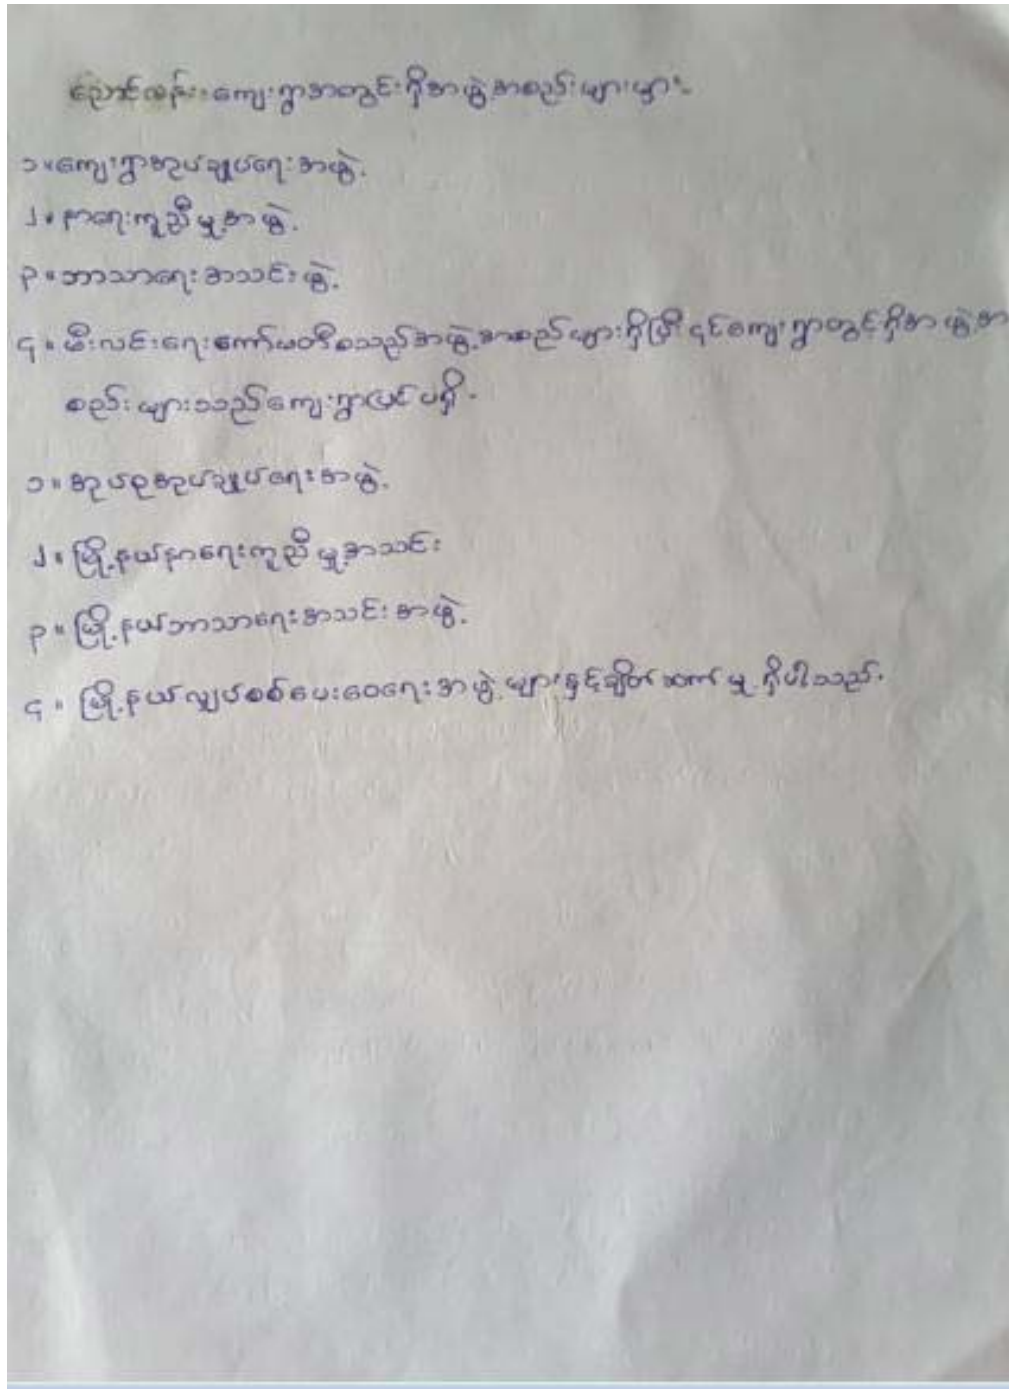 ညောင်လန်းကျေးရွာအတွင်းရှိအဖွဲ့အစည်းများမှာ
၁။ ကျေးရွာအုပ်ချုပ်ရေးအဖွဲ့
၂။ နာရေးကူညီမှု့အဖွဲ့
၃။ ဘာသာရေးအသင်းဖွဲ့
၄။ မီးလင်းရေးကော်မတီစသည်အဖွဲ့အစည်များရှိပြီး၎င်ကျေးရွာတွင့်ရှိအဖွဲ့အ
စည်းများသည်ကျေးရွာပြင်ပရှိ
၁။ အုပ်စုအုပ်ချုပ်ရေးအဖွဲ့
၂။ မြို့နယ်နာရေးကူညီမှု့အသင်း
၃။ မြို့နယ်ဘာသာရေးအသင်းအဖွဲ့
၄။ မြို့နယ်လျှပ်စစ်ပေးဝေရေးအဖွဲ့များနှင့်ချိတ်ဆက်မှု့ရှိပါသည်